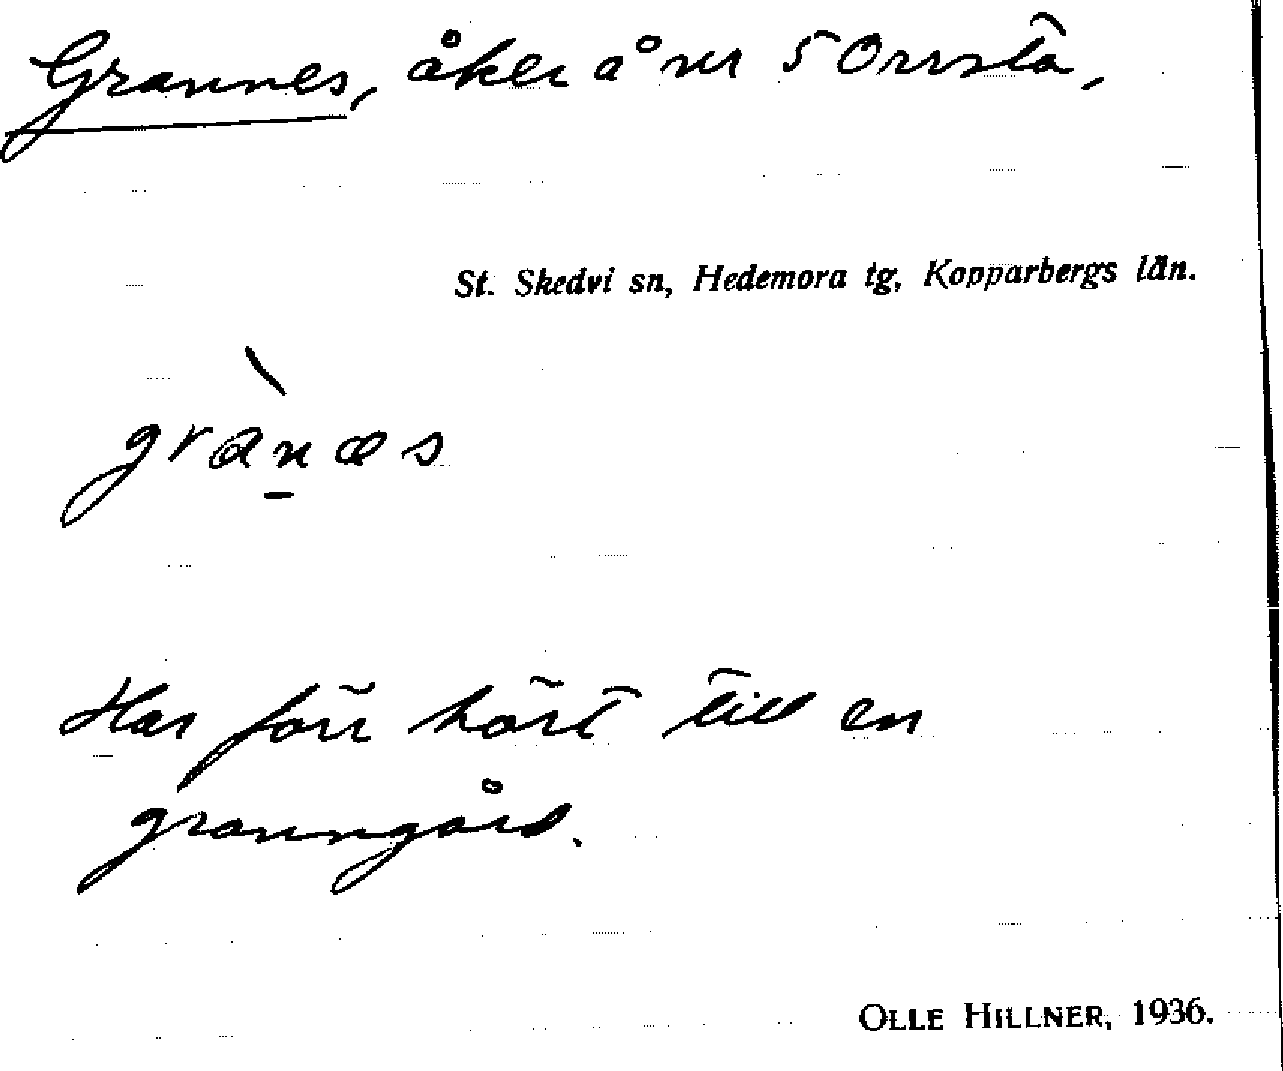 Grannes, åker å nr 5 Orrsta,
St. Skedvi sn, Hedemora tg, Kopparbergs län.
grànæs
Har förr hört till en
granngård.
OLLE HILLNER, 1936.